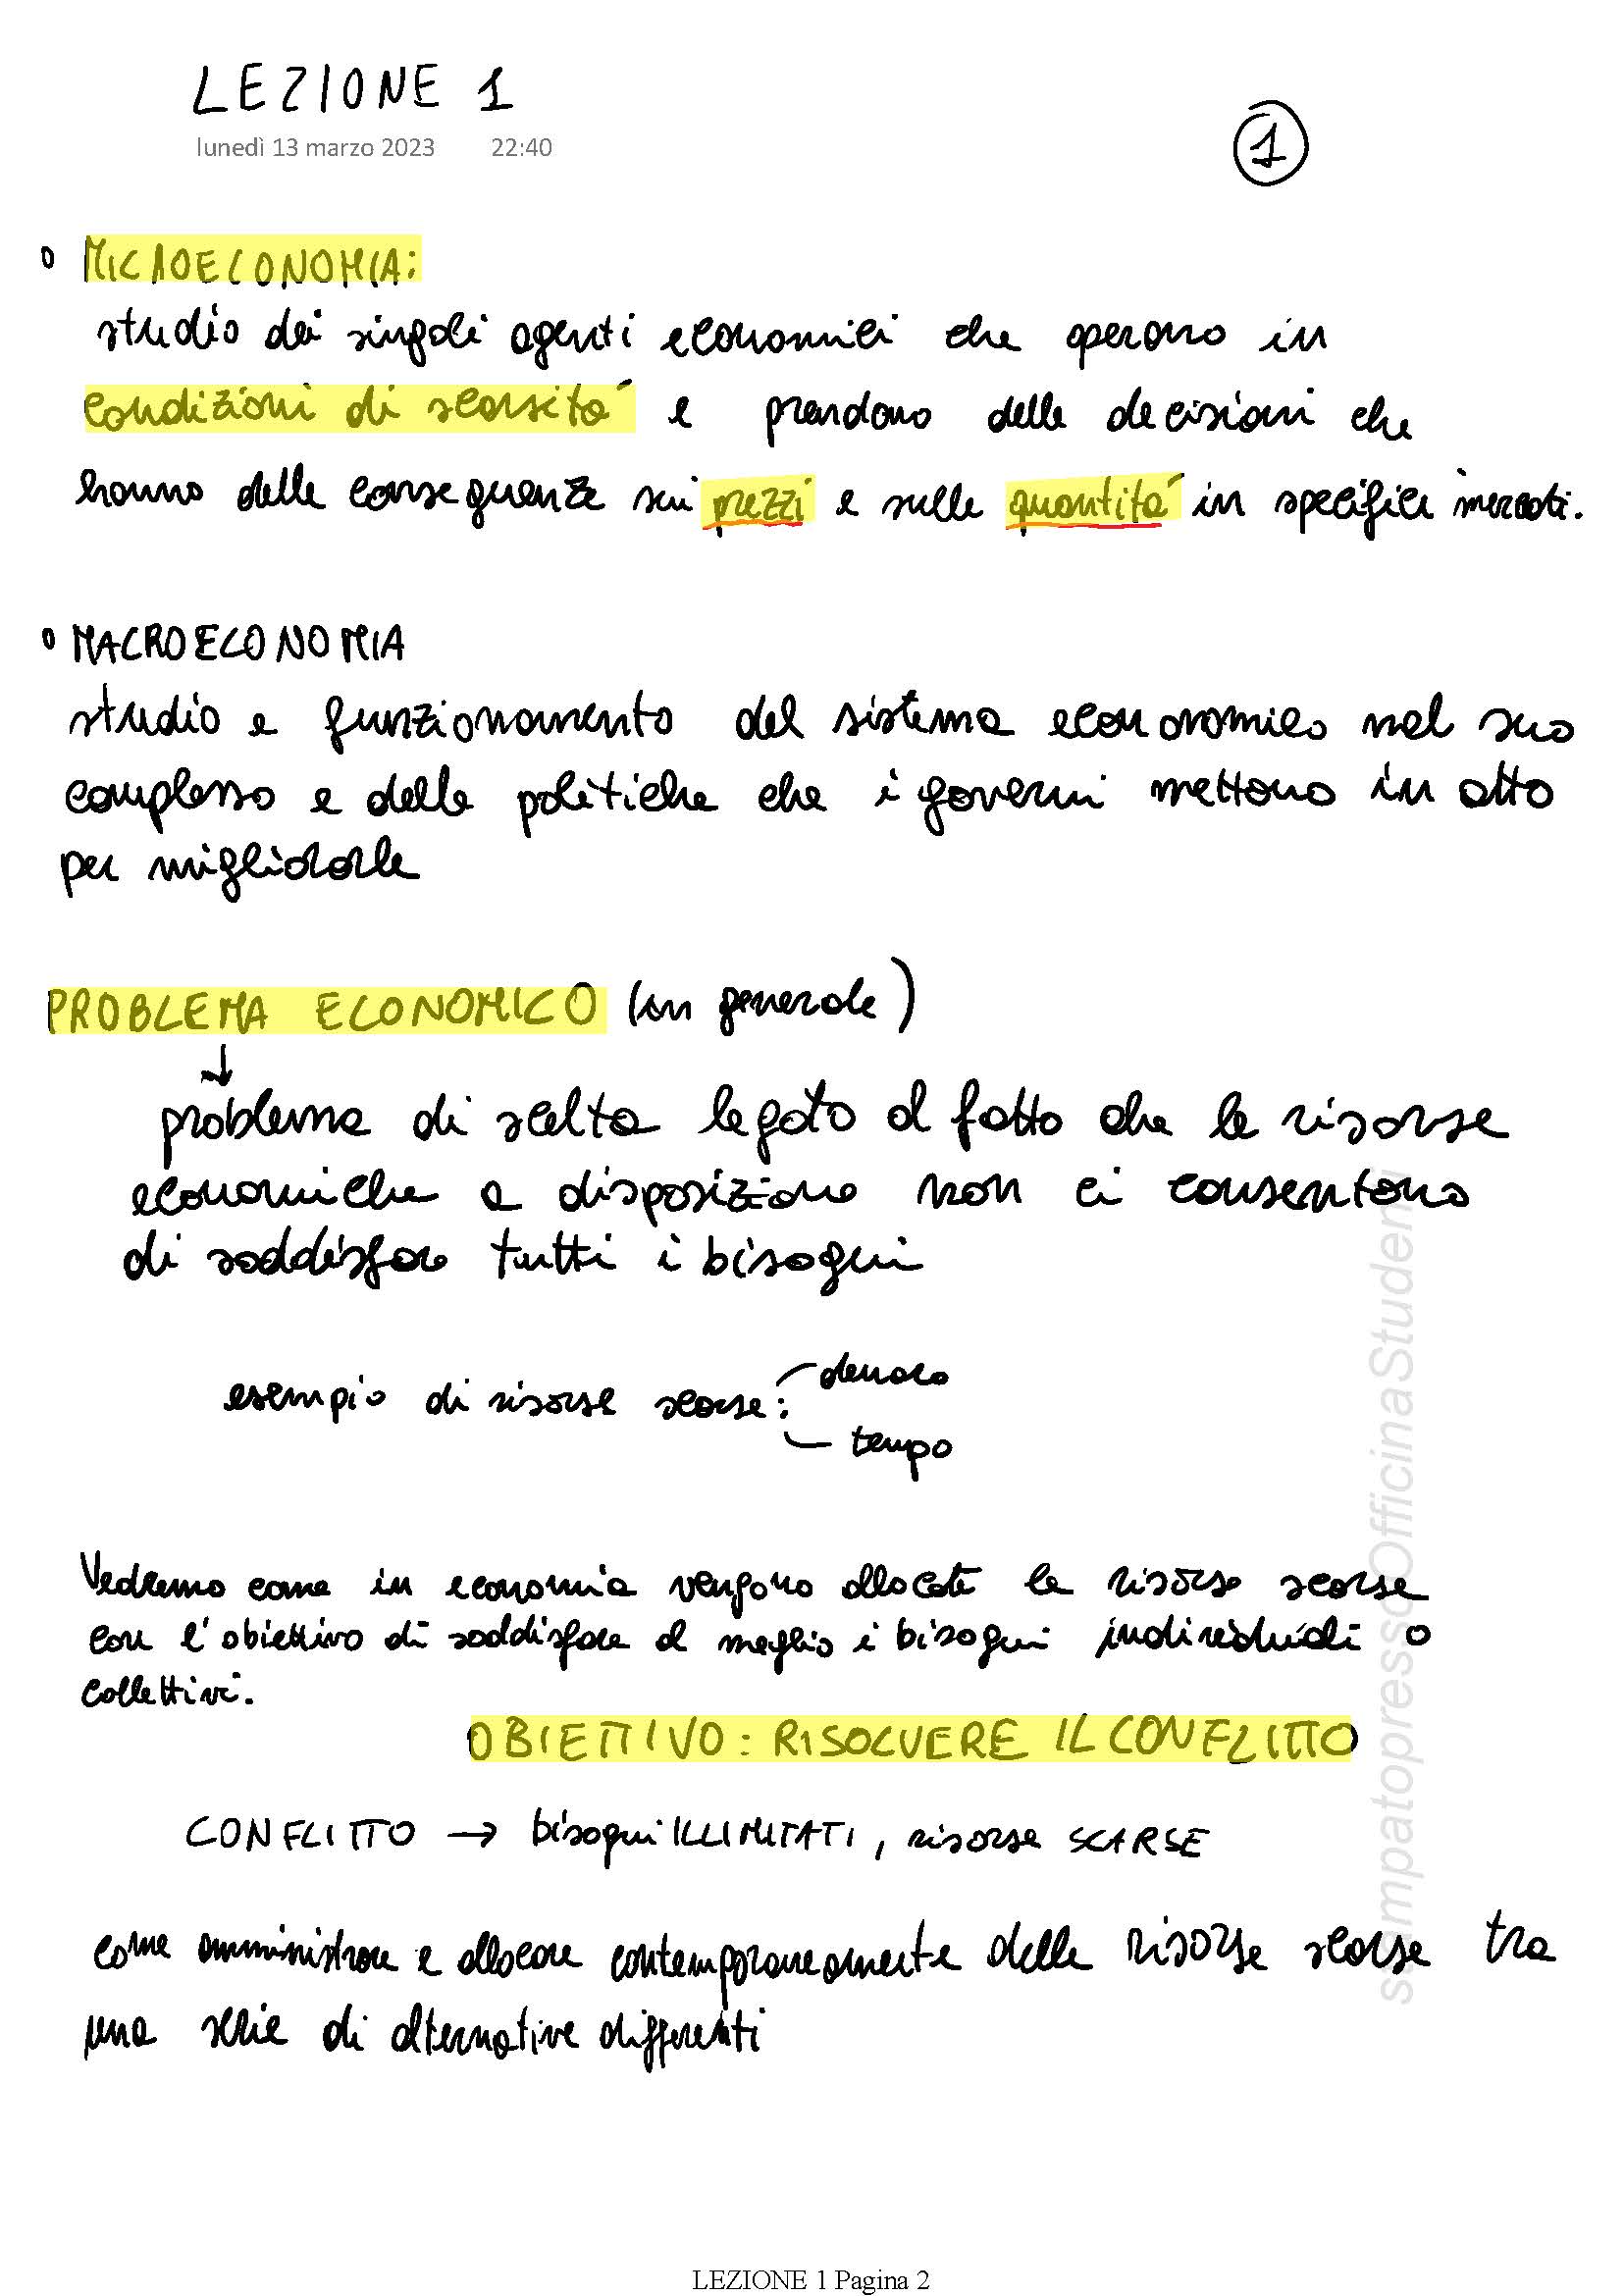 LEZIONE 1
lunedì 13 marzo 2023 22:40
1
MICROECONOMIA:
studio dei singoli agenti economici che operano in
condizioni di scarsità e prendono delle decisioni che
hanno delle conseguenze sui prezzi e sulle quantità in specifici mercati.
MACROECONOMIA
studio e funzionamento del sistema economico nel suo
complesso e delle politiche che i governi mettono in atto
per migliorarle
PROBLEMA ECONOMICO (in generale)
↓
problema di scelta legato al fatto che le risorse
economiche a disposizione non ci consentono
di soddisfare tutti i bisogni
esempio di risorse scarse: denaro
tempo
Vedremo come in economia vengono allocate le risorse scarse
con l'obiettivo di soddisfare al meglio i bisogni individuali o
collettivi.
OBIETTIVO: RISOLVERE IL CONFLITTO
CONFLITTO → bisogni ILLIMITATI, risorse SCARSE
come amministrare e allocare contemporaneamente delle risorse scarse tra
una serie di alternative differenti
stampatopressoOfficinaStudenti
LEZIONE 1 Pagina 2